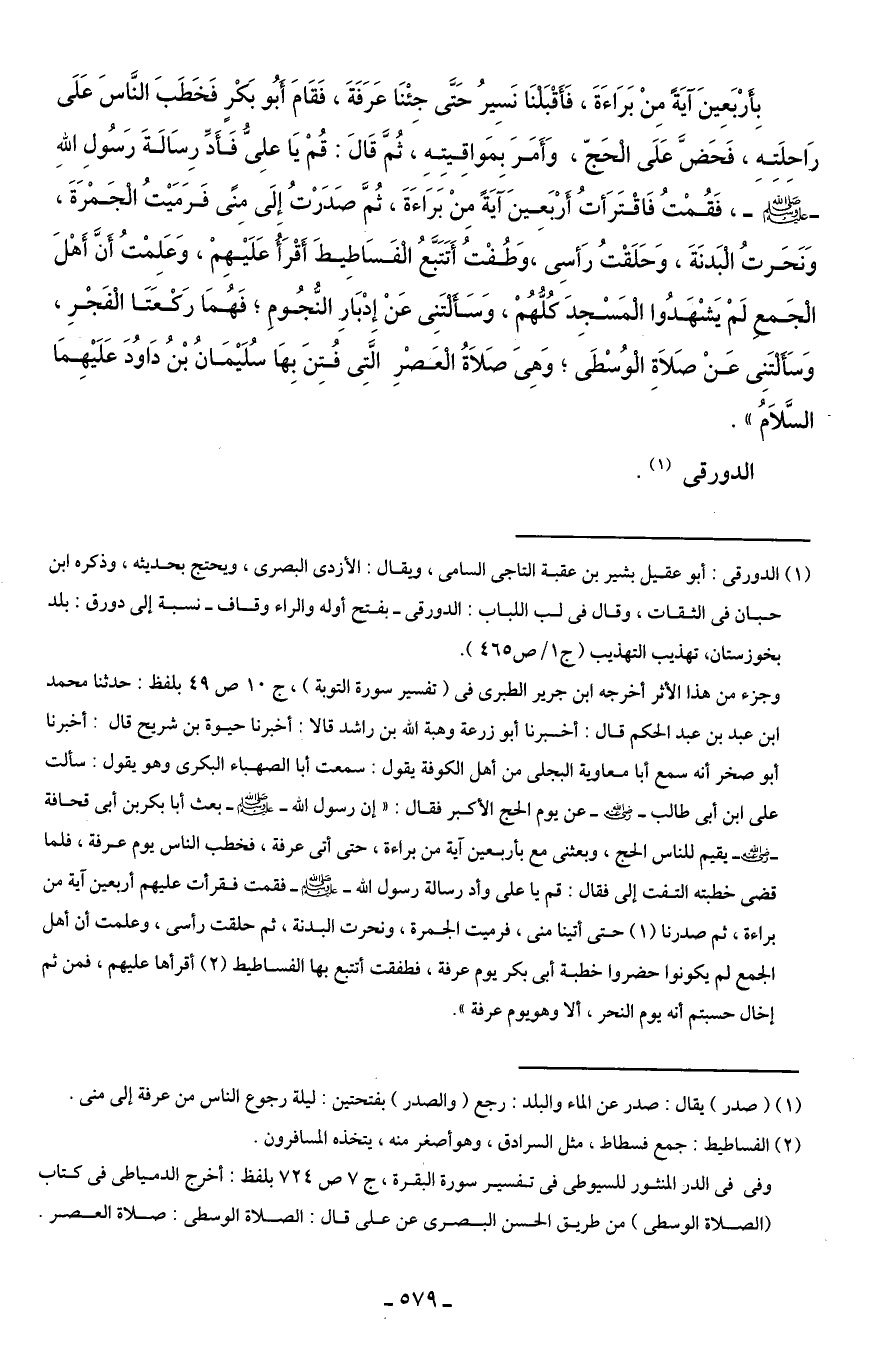 بِأَرْبَعِينَ آيَةً مِنْ بَرَاءَةَ ، فَأَقْبَلْنَا نَسِيرُ حَتَّى جِئْنَا عَرَفَةَ ، فَقَامَ أَبُو بَكْرٍ فَخَطَبَ النَّاسَ عَلَى
رَاحِلَتِهِ ، فَحَضَّ عَلَى الْحَجِّ ، وَأَمَرَ بِمَوَاقِيتِهِ ، ثُمَّ قَالَ : قُمْ يَا عَلِىُّ فَأَدِّ رِسَالَةَ رَسُولِ اللهِ
ـ ﷺ ـ ، فَقُمْتُ فَاقْتَرَأتُ أَرْبَعِينَ آيَةً مِنْ بَرَاءَةَ ، ثُمَّ صَدَرْتُ إِلَى مِنًى فَرَمَيْتُ الْجَمْرَةَ ،
وَنَحَرتُ الْبَدنَةَ ، وَحَلَقْتُ رَأسِى ،وَطُفْتُ أَتَتَبَّعُ الْفَسَاطِيطَ أَقْرَأُ عَلَيْهِمْ ، وَعَلِمْتُ أَنَّ أَهْلَ
الجَمعِ لَمْ يَشْهَدُوا الْمَسْجِدَ كُلُّهُمْ ، وَسَأَلْتَنِى عَنْ إِدْبَارِ النُّجُومِ ؛ فَهُمَا رَكْعَتَا الْفَجْرِ ،
وَسَأَلْتَنِى عَنْ صَلاَةِ الْوُسْطَى ؛ وَهِىَ صَلاَةُ الْعَصْرِ الَّتِى فُتِنَ بِهَا سُلَيْمَانُ بْنُ دَاوُدَ عَلَيْهِمَا
السَّلاَمُ » .
الدورقى (١) .
(١) الدورقى : أبو عقيل بشير بن عقبة الناجى السامى ، ويقال : الأزدى البصرى ، ويحتج بحديثه ، وذكره ابن
حبان فى الثقات ، وقال فى لب اللباب : الدورقى ـ بفتح أوله والراء وقاف ـ نسبة إلى دورق : بلد
بخوزستان، تهذيب التهذيب ( ج١/ ص٤٦٥ ).
وجزء من هذا الأثر أخرجه ابن جرير الطبرى فى ( تفسير سورة التوبة ) ، ج ١٠ ص ٤٩ بلفظ : حدثنا محمد
ابن عبد بن عبد الحكم قال : أخبرنا أبو زرعة وهبة الله بن راشد قالا : أخبرنا حيوة بن شريح قال : أخبرنا
أبو صخر أنه سمع أبا معاوية البجلى من أهل الكوفة يقول : سمعت أبا الصهباء البكرى وهو يقول : سألت
على ابن أبى طالب ـ رضي الله عنه ـ عن يوم الحج الأكبر فقال : « إن رسول الله ـ ﷺ ـ بعث أبا بكربن أبى قحافة
ـ رضي الله عنه ـ يقيم للناس الحج ، وبعثنى مع بأربعين آية من براءة ، حتى أتى عرفة ، فخطب الناس يوم عرفة ، فلما
قضى خطبته التفت إلى فقال : قم يا على وأد رسالة رسول الله ـ ﷺ ـ فقمت فقرأت عليهم أربعين آية من
براءة ، ثم صدرنا (١) حتى أتينا منى ، فرميت الجمرة ، ونحرت البدنة ، ثم حلقت رأسى ، وعلمت أن أهل
الجمع لم يكونوا حضروا خطبة أبى بكر يوم عرفة ، فطفقت أتتبع بها الفساطيط (٢) أقرأها عليهم ، فمن ثم
إخال حسبتم أنه يوم النحر ، ألا وهويوم عرفة ».
(١) ( صدر ) يقال : صدر عن الماء والبلد : رجع ( والصدر ) بفتحتين : ليلة رجوع الناس من عرفة إلى منى .
(٢) الفساطيط : جمع فسطاط ، مثل السرادق ، وهوأصغر منه ، يتخذه المسافرون .
وفى فى الدر المنثور للسيوطى فى تفسير سورة البقرة ، ج ٧ ص ٧٢٤ بلفظ : أخرج الدمياطى فى كتاب
(الصلاة الوسطى ) من طريق الحسن البصرى عن على قال : الصلاة الوسطى : صلاة العصر .
ـ ٥٧٩ ـ